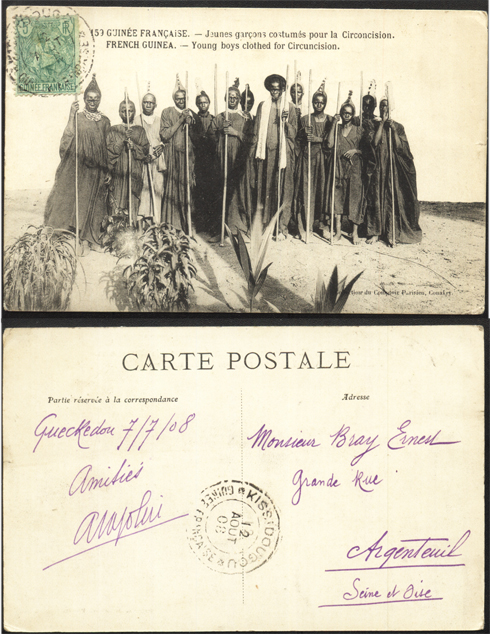 159 GUINÉE FRANÇAISE. — Jeunes garçons costumés pour la Circoncision.
FRENCH GUINEA. — Young boys clothed for Circuncision.
5
GUINÉE FRANÇAISE
du Comptoir Parisien, Conakry
CARTE POSTALE
Partie réservée à la correspondance
Adresse
Gueckedou 7/7/08
Amitiés
Monsieur Bray Ernest
Grande Rue
Argenteuil
Seine et Oise
KISSIDOUGOU
12
AOUT
08
GUINÉE FRANÇAISE